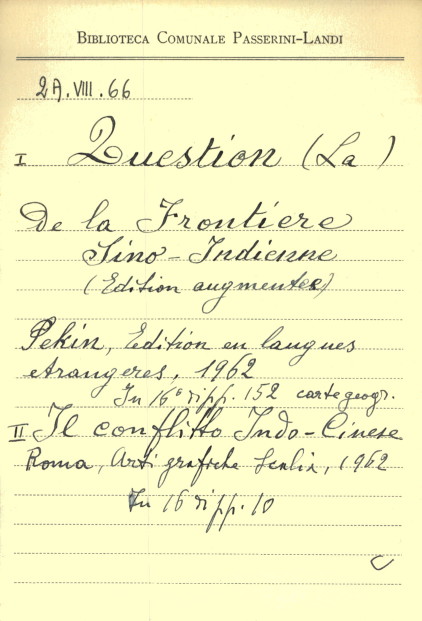 BIBLIOTECA COMUNALE PASSERINI-LANDI
2A.VIII.66
I Question (La)
De la Frontiere
Sino-Indienne
(Edition augmentee)
Pekin, Edition en langues
etrangeres, 1962
In 16° di pp. 152 carte geogr.
II Il conflitto Indo-Cinese
Roma, Arti grafiche Scalia, 1962
In 16 di pp. 10